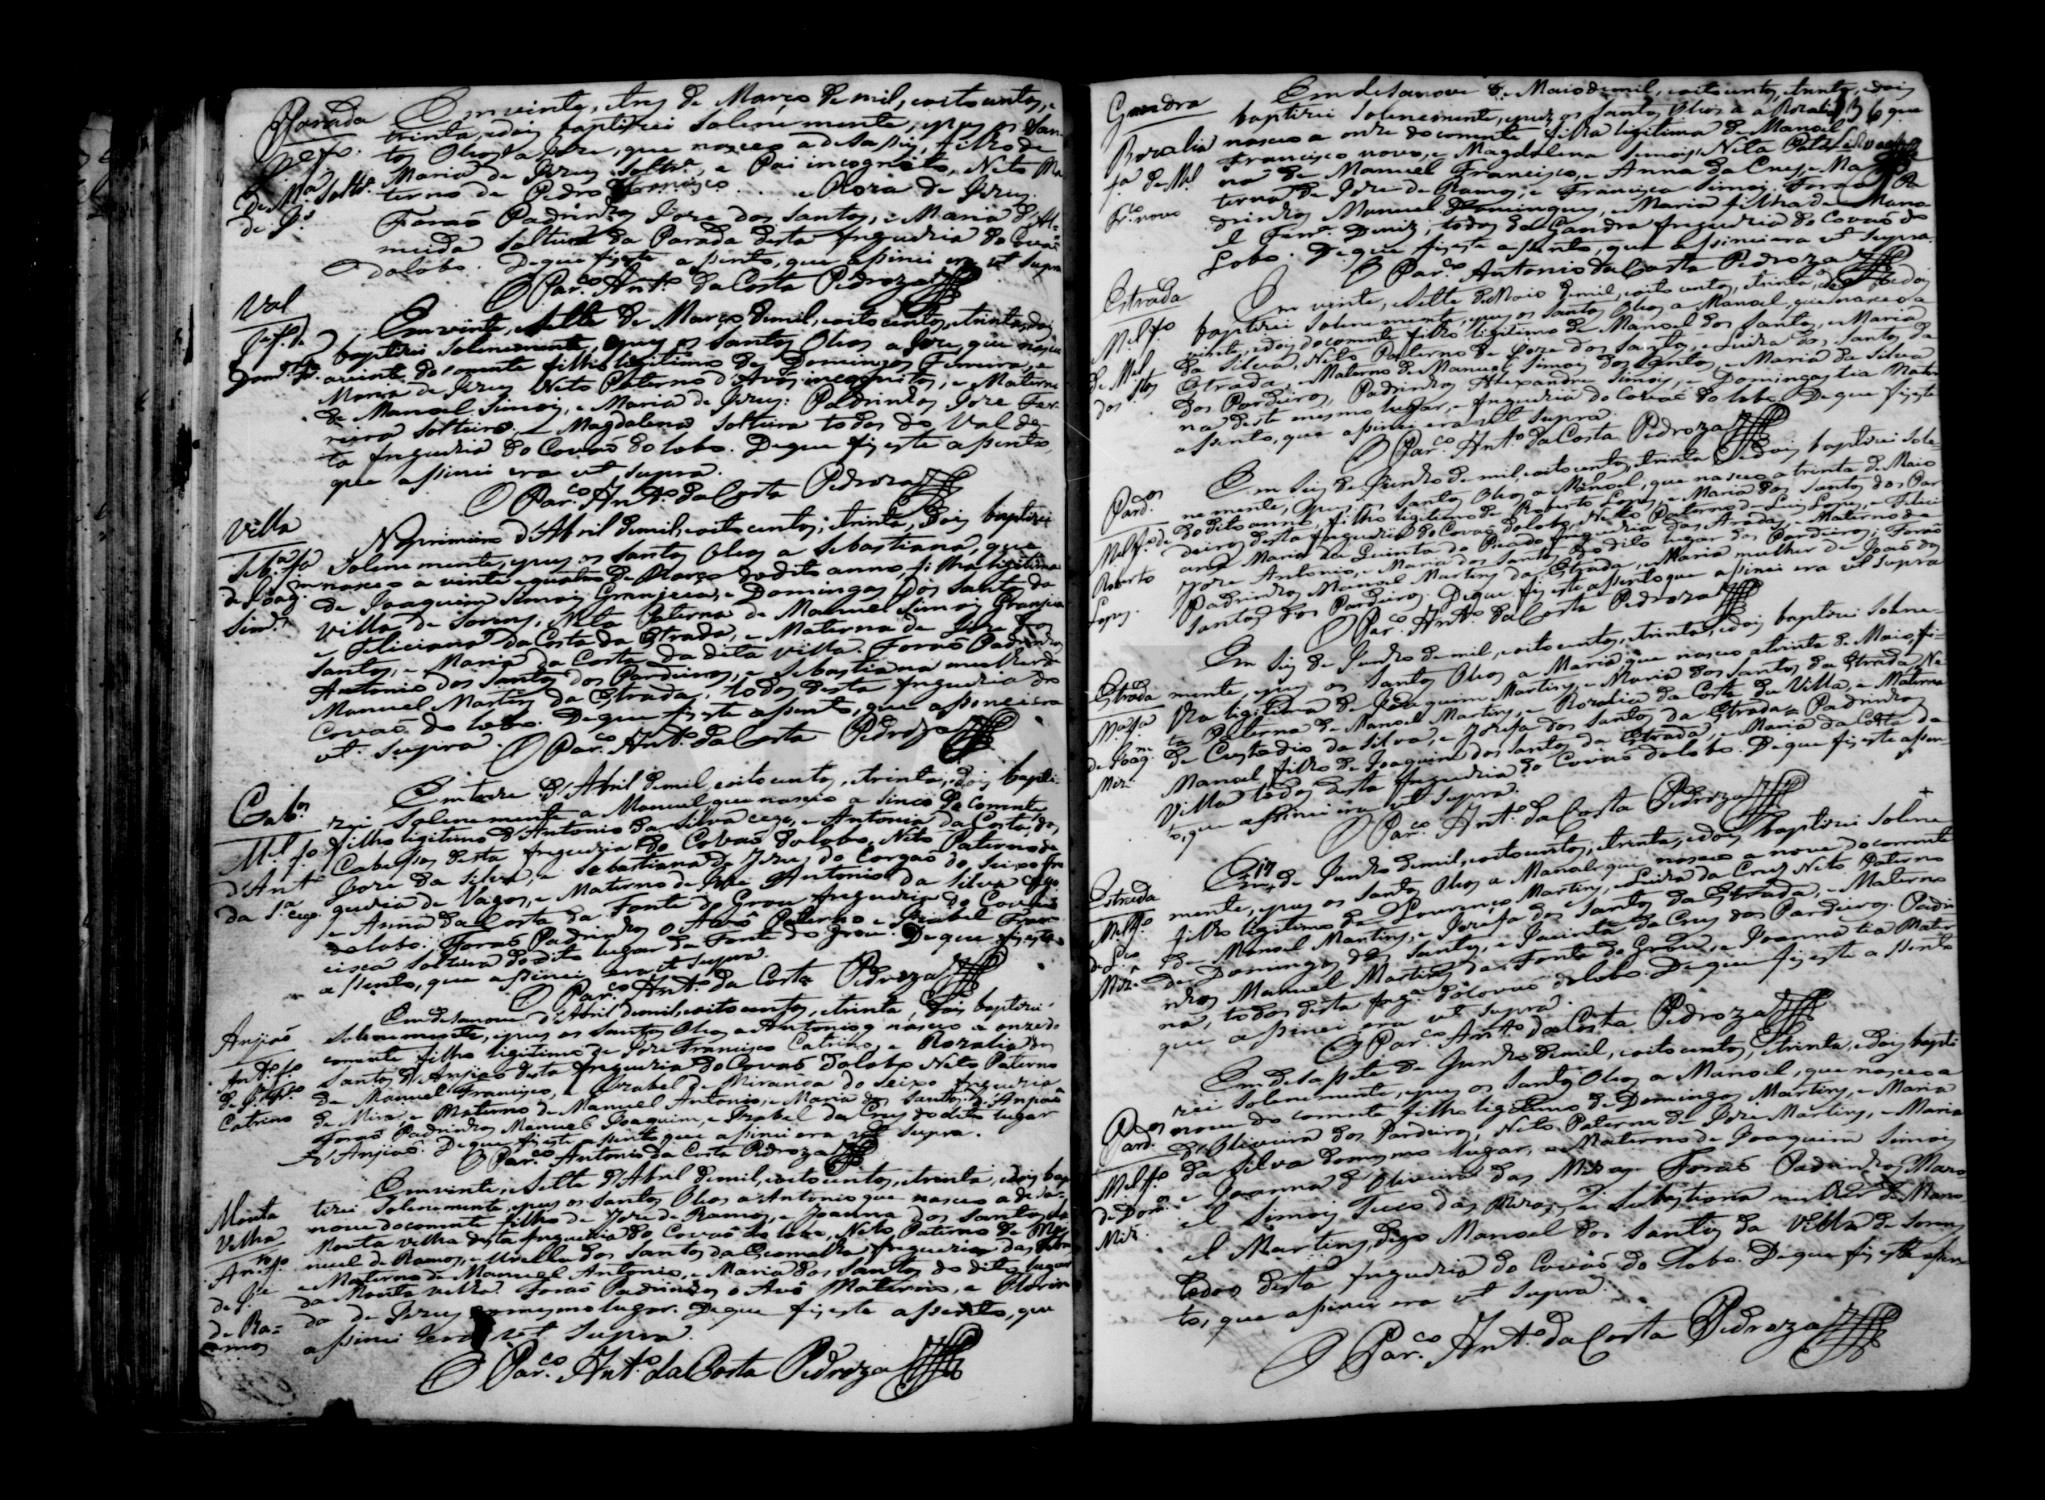 Parada
Joze fo.
de Ma. Soltra.
de J.
Em vinte, e tres de Março de mil, e oito centos, e
trinta, e dois baptizei solenemente, e puz os San-
tos Oleos a Joze, que nasceo a desaseis, filho de
Maria de Jezus Soltra., e Pai incognito, Neto Ma
terno de Pedro Francisco e Roza de Jezus.
Foraõ Padrinhos Joze dos Santos, e Maria d'Al-
meida Solteira da Parada desta freguezia do Covaõ
do lobo. De que fiz este aSsento, que aSsinei era ut supra
O Par.co Ant.o da Costa Pedroza
Val
Je. fo. de
Domos. Fra.
Em vinte, e sette de Março de mil, e oito centos, e trinta, e dois
baptizei solenemente, e puz os Santos Oleos a Joze, que nasceo
a vinte do corrente filho legitimo de Domingos Ferreira, e
Maria de Jezus Neto Paterno d'Avós incognitos, e Materno
de Manoel Simois, e Maria de Jezus: Padrinhos Joze Fer-
reira solteiro e Magdalena solteira todos do Val des-
ta freguezia do Covaõ do lobo. De que fiz este aSsento,
que aSsinei era ut supra.
O Par.co Ant.o da Costa Pedroza
Villa
Seb.a fa
de Joaq.m
Sim.s
No primeiro d'Abril de mil, e oito centos, e trinta, e dois baptizei
solenemente, e puz os Santos Oleos a Sebastiana, que
nasceo a vinte e quatro de Março do dito anno, filha legitima
de Joaquim Simois Granjeia, e Domingas dos Santos da
Villa de Sorens, Neta Paterna de Manuel Simois Granjeia
e Feliciana da Costa da Estrada, e Materna de Joze dos
Santos, e Maria da Costa da dita Villa. Foraõ Padrinhos
Antonio dos Santos dos Pardieiros, e Sebastiana mulher de
Manuel Martins da Estrada, todos desta freguezia do
Covaõ do lobo. De que fiz este aSsento, que aSsinei era
ut supra.
O Par.co Ant.o da Costa Pedroza
Cab.os
Mel fo
d'Ant.o
da S.a cego
Em treze d'Abril de mil, e oito centos, e trinta, e dois bapti-
zei solenemente a Manuel que nasceo a sinco do corrente
filho legitimo d'Antonio da Silva cego, e Antonia da Costa, dos
Cabessos desta freguezia do Covaõ do lobo, Neto Paterno de
Joze da Silva, e Sebastiana de Jezus, do Corgo do Seixo fre
guezia de Vagos, e Materno de Joze Antonio da Silva cego,
e Anna da Costa da Fonte do Grou freguezia do Covaõ
do lobo: Foraõ Padrinhos o Avô Paterno e Izabel Fran-
cisca solteira do dito lugar da Fonte do Grou: De que fiz este
aSsento, que aSsinei era ut supra.
O Par.co Ant.o da Costa Pedroza
Anjiaõ
Ant.o fo.
de Je. Fco.
Catrino
Em desanove d'Abril de mil, e oito centos, e trinta, e dois baptizei
solenemente, e puz os Santos Oleos a Antonio q nasceo a onze do
corrente filho legitimo de Joze Francisco Catrino, e Rozalia dos
Santos d'Anjiaõ desta freguezia do Covaõ do lobo Neto Paterno
de Manuel Francisco, e Izabel de Miranda do Seixo freguezia
de Mira, e Materno de Manuel Antonio, e Maria dos Santos d'Anjiaõ
Foraõ Padrinhos Manuel Joaquim, e Izabel da Cruz do dito lugar
d'Anjiaõ. De que fiz este aSsento que aSsinei era ut supra.
O Par.co Antonio da Costa Pedroza
Monta
Velha
An.to fo.
de Je.
de Ra-
mos
Em vinte, e sette d'Abril de mil, e oito centos, e trinta, e dois bap
tizei solenemente, e puz os Santos Oleos a Antonio que nasceo a desa-
nove do corrente filho de Joze de Ramos, e Joanna dos Santos da
Monta velha desta freguezia do Covaõ do lobo, Neto Paterno de Ma-
nuel de Ramos, e dos Santos da freguezia das Febres
e Materno de Manuel Antonio, e Maria dos Santos do dito lugar
da Monta velha. Foraõ Padrinhos o Avô Materno, e
de Jezus do mesmo lugar. De que fiz este aSsento, que
aSsinei era ut supra.
O Par.co Ant.o da Costa Pedroza
Gandra
Rozalia
fa. de Mel
Fco. novo
Em desanove de Maio de mil, e oito centos, e trinta, e dois
baptizei solenemente, e puz os Santos Oleos a Rozalia, que
136
nasceo a onze do corrente filha legitima de Manoel
Francisco novo, e Magdalena Simois, Neta Pater-
na de Manuel Francisco, e Anna da Cruz, e Ma-
terna de Joze de Ramos, e Francisca Simois. Foraõ Pa
drinhos Manuel Domingues, e Maria filha de Mano-
el Ferr.a Diniz, todos da Gandra freguezia do Covaõ do
Lobo. De que fiz este aSsento, que aSsinei era ut supra.
O Par.co Antonio da Costa Pedroza
Estrada
Mel fo
de Mel
dos Stos
Em vinte, e sette de Maio de mil, e oito centos, e trinta, e dois
baptizei solenemente, e puz os Santos Oleos a Manoel, que nasceo a
vinte, e dois do corrente filho legitimo de Manoel dos Santos, e Maria
da Silva, Neto Paterno de Joze dos Santos, e Luiza dos Santos da
Estrada, e Materno de Manuel Simois dos Santos, e Maria da Silva
dos Pardieiros, Padrinhos Alexandre Simois, e Domingas tia Mater
na deste mesmo lugar, e freguezia do Covaõ do lobo. De que fiz este
aSsento, que aSsinei era ut supra.
O Par.co Ant.o da Costa Pedroza
Pard.os
Mel fo de
Roberto
Lopes.
Em seis de Junho de mil, e oito centos, e trinta, e dois baptizei sole-
nemente, e puz os Santos Oleos a Manoel, que nasceo a trinta de Maio
do dito anno, filho legitimo de Roberto Lopes, e Maria dos Santos dos Par
dieiros desta freguezia do Covaõ do lobo, Neto Paterno de Luis Lopes, e Felici
ana Maria da Quinta do Picado freguezia das Aradas, e Materno de
Joze Antonio, e Maria dos Santos do dito lugar dos Pardieiros; Foraõ
Padrinhos Manoel Martins da Estrada, e Maria mulher de Joaõ dos
Santos dos Pardieiros. De que fiz este aSsento que aSsinei era ut supra
O Par.co Ant.o da Costa Pedroza
Estrada
Ma. fa
de Joaq.m
Miz.
Em seis de Junho de mil, e oito centos, e trinta, e dois baptizei solene-
mente, e puz os Santos Oleos a Maria, que nasceo a trinta de Maio, fi-
lha legitima de Joaquim Martins, e Maria dos Santos da Estrada Ne-
ta Paterna de Manoel Martins, e Rozalia da Costa da Villa, e Materna
de Custodio da Silva, e Jozefa dos Santos da Estrada. Padrinhos
Manoel filho de Joaquim dos Santos da Estrada, e Maria da Costa da
Villa todos desta freguezia do Covaõ do lobo. De que fiz este aSsen-
to, que aSsinei era ut supra.
O Par.co Ant.o da Costa Pedroza
Estrada
Mel fo.
de Lço
Miz.
Em 17 de Junho de mil, e oito centos, e trinta, e dois baptizei solene
mente, e puz os Santos Oleos a Manoel que nasceo a nove do corrente
filho legitimo de Lourenço Martins, e Luiza da Cruz Neto Paterno
de Manoel Martins, e Jozefa dos Santos da Estrada, e Materno
de Domingos dos Santos, e Jacinta da Cruz dos Pardieiros. Padri
nhos Manuel Martins da Fonte do Grou, e Joanna tia Mater
na, todos desta freg.a do Covaõ do lobo. De que fiz este aSsento
que aSsinei era ut supra.
O Par.co Ant.o da Costa Pedroza
Pard.os
Mel fo
de Dom.os
Miz.
Em desasete de Junho de mil, e oito centos, e trinta, e dois bapti
zei solenemente, e puz os Santos Oleos a Manoel, que nasceo a
nove do corrente filho legitimo de Domingos Martins, e Maria
d'Oliveira dos Pardieiros, Neto Paterno de Joze Martins, e Maria
da Silva do mesmo lugar, e Materno de Joaquim Simois
e Joanna d'Oliveira das Mezas. Foraõ Padrinhos Mano-
el Simois Suco das Mezas, e Sebastiana mulher de Mano
el Martins, digo Manoel dos Santos da Villa de Sorens
todos desta freguezia do Covaõ do Lobo. De que fiz este aSsen
to, que aSsinei era ut supra.
O Par.co Ant.o da Costa Pedroza